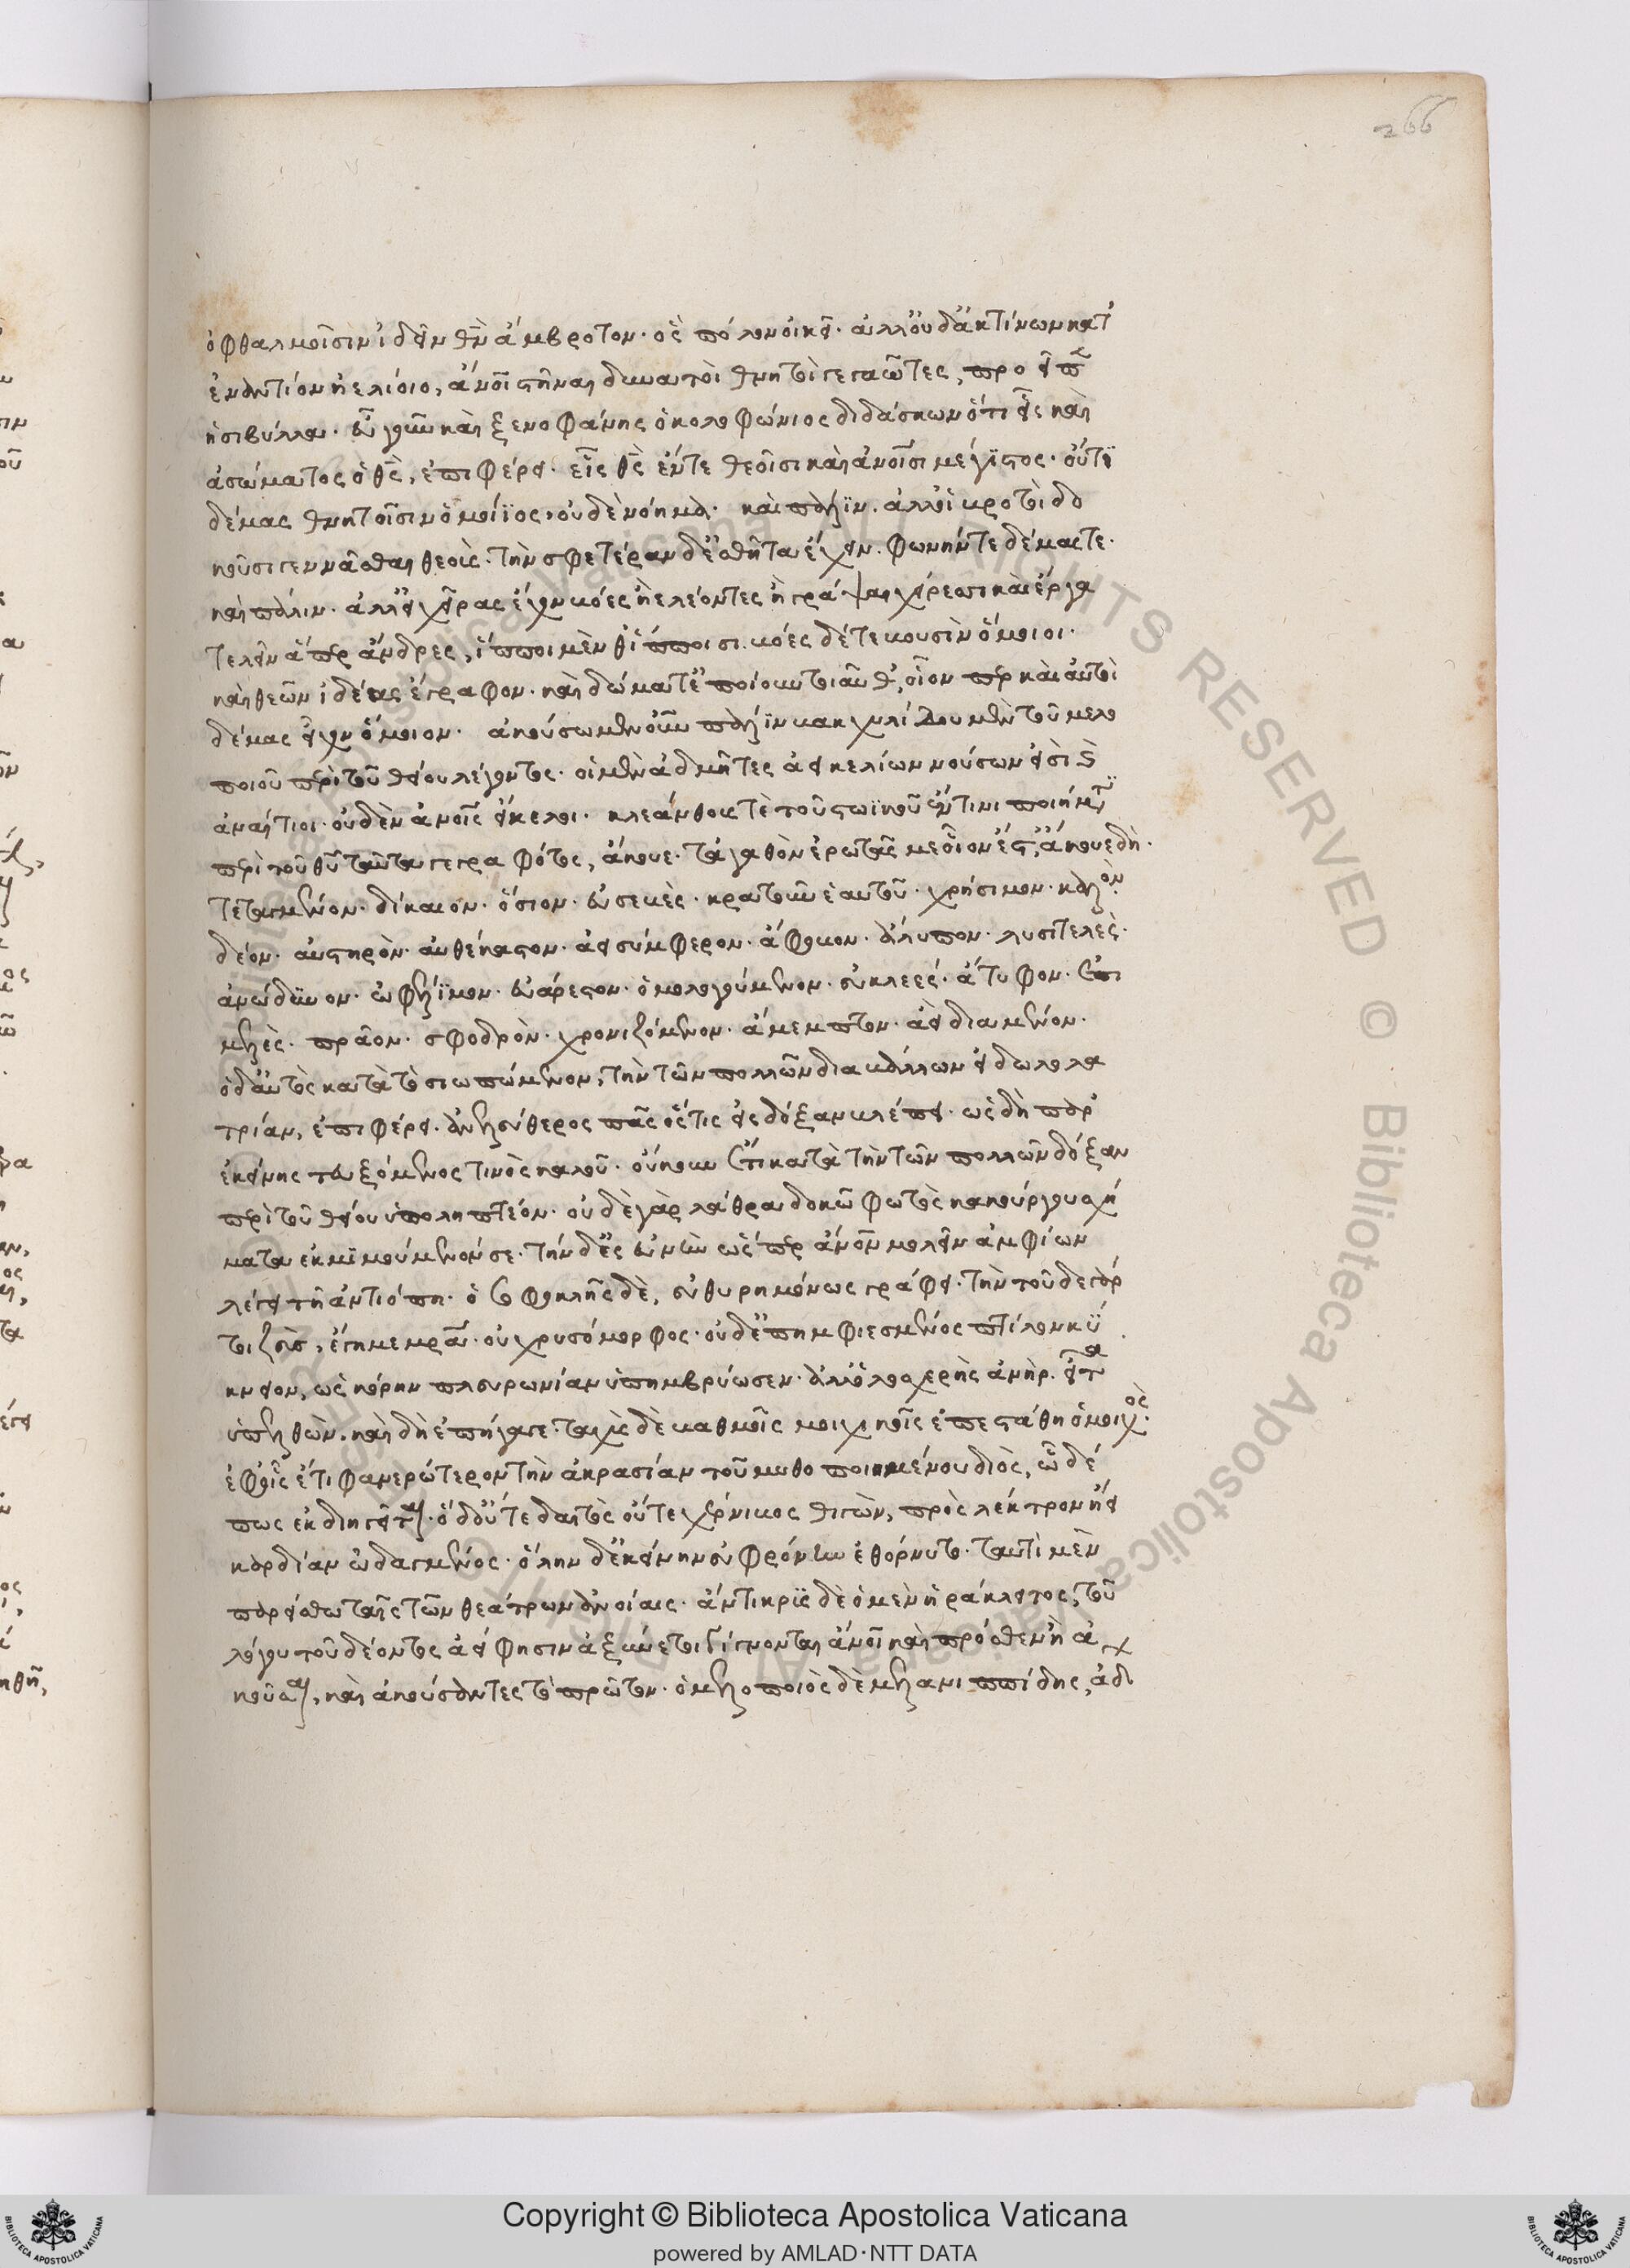 266
ὀφθαλμοῖσιν ἰδεῖν θν ἄμβροτον· ὃς πόλον οἰκεῖ· ἀλλ' οὐδ' ἀκτίνων κατ'
ἐναντίον ἠελίοιο, ἄνοι στῆναι δυνατοὶ θνητοὶ γεγαῶτες, προεῖπ
ἡ σιβύλλα· εὖ γοῦν καὶ ξενοφάνης ὁ κολοφώνιος διδάσκων ὅτι εἷς καὶ
ἀσώματος ὁ θς, ἐπιφέρει· εἷς θς ἔν τε θεοῖσι καὶ ἀνοισι μέγιστος· οὔτι
δέμας θνητοῖσιν ὁμοίϊος, οὐδὲ νόημα· καὶ πάλιν· ἀλλ' οἱ βροτοὶ δο
κοῦσι γεννᾶσθαι θεοὺς· τὴν σφετέραν δ' ἐσθῆτα ἔχειν· φωνήν τε δέμας τε·
καὶ πάλιν· ἀλλ' εἰ χεῖρας ἔχον βόες ἠὲ λέοντες ἢ γράψαι χείρεσσι καὶ ἔργα
τελεῖν ἅπερ ἄνδρες, ἵπποι μὲν θ' ἵπποισι βόες δέ τε βουσὶν ὅμοιοι·
καὶ θεῶν ἰδέας ἔγραφον· καὶ δώματ' ἐποίουν τοιαῦθ', οἷόν περ καὶ αὐτοὶ
δέμας εἶχον ὅμοιον· ἀκούσωμεν οὖν πάλιν βακχυλίδου μὲν τοῦ μελο
ποιοῦ περὶ τοῦ θείου λέγοντος· οἱ μὲν ἀδμῆτες ἀεικελίων νούσων εἰσὶ καὶ
ἀναίτιοι· οὐδὲν ἀνοις εἴκελοι· κλεάνθους τὲ τοῦ στωϊκοῦ ἔν τινι ποιήματι
περὶ τοῦ θυ ταῦτα γεγραφότος, ἄκουε· τἀγαθὸν ἐρωτᾶς μ' οἷον ἔστ', ἄκουε δή·
τεταγμένον· δίκαιον· ὅσιον· εὐσεβές· κρατοῦν ἑαυτοῦ· χρήσιμον· καλὸν·
δέον· αὐστηρὸν· αὐθέκαστον· ἀεὶ σύμφερον· ἄφοβον· ἄλυπον· λυσιτελὲς·
ἀνώδυνον· ὠφέλιμον· εὐάρεστον· ὁμολογούμενον· εὐκλεές· ἄτυφον· ἐπι
μελές· πρᾶον· σφοδρὸν· χρονιζόμενον· ἄμεμπτον· ἀεὶ διαμένον·
ὁ δ' αὐτὸς κατὰ τὸ σιωπώμενον, τὴν τῶν πολλῶν διαβάλλων εἰδωλολα
τρίαν, ἐπιφέρει· ἀνελεύθερος πᾶς ὅστις εἰς δόξαν βλέπει· ὡς δὴ παρ'
ἐκείνης τευξόμενος τινὸς καλοῦ· οὔκουν ἔτι κατὰ τὴν τῶν πολλῶν δόξαν
περὶ τοῦ θείου ὑποληπτέον· οὐδὲ γὰρ λάθρα δοκῶ φωτὸς κακούργου σχή
ματα ἐκμιμούμενόν σε· τήνδ' ἐς εὐνὴν ὥσπερ ἄνον μολεῖν ἀμφίων
λέγει τῇ ἀντιόπῃ· ὁ σοφοκλῆς δὲ, εὐθυρημόνως γράφει· τὴν τοῦδε γάρ
τοι ζεὺς, ἔγημε μρα· οὐ χρυσόμορφος· οὐδ' ἐπημφιεσμένος πτίλον κύ
κνειον, ὡς κόρην πλευρωνίαν ὑπημβρύωσεν· ἀλλ' ὁλοσχερὴς ἀνὴρ· εἶτα
ὑπελθὼν· καὶ δὴ ἐπήγαγε· ταχὺς δὲ βαθμοῖς νυμφικοῖς ἐπεστάθη ὁ μοιχὸς·
ἐφ' οἷς ἔτι φανερώτερον τὴν ἀκρασίαν τοῦ μυθοποιουμένου διὸς, ὧδέ
πως ἐκδιηγεῖται· ὁ δ' οὔτε δαιτὸς οὔτε χέρνιβος θιγὼν, πρὸς λέκτρον ᾔει
καρδίαν ὠδαγμένος· ὅλην δ' ἐκείνην εὐφρόνην ἐθόρνυτο· ταυτὶ μὲν
παρείσθω ταῖς τῶν θεάτρων ἀνοίαις· ἄντικρυς δὲ ὁ μὲν ἡράκλειτος, τοῦ
λόγου τοῦ δέοντος ἀεί φησιν ἀξύνετοι γίγνονται ἄνοι καὶ πρόσθεν ἢ ἀ
κοῦσαι, καὶ ἀκούσαντες τὸ πρῶτον· ὁ μελοποιὸς δὲ μελανιππίδης, ᾄδω